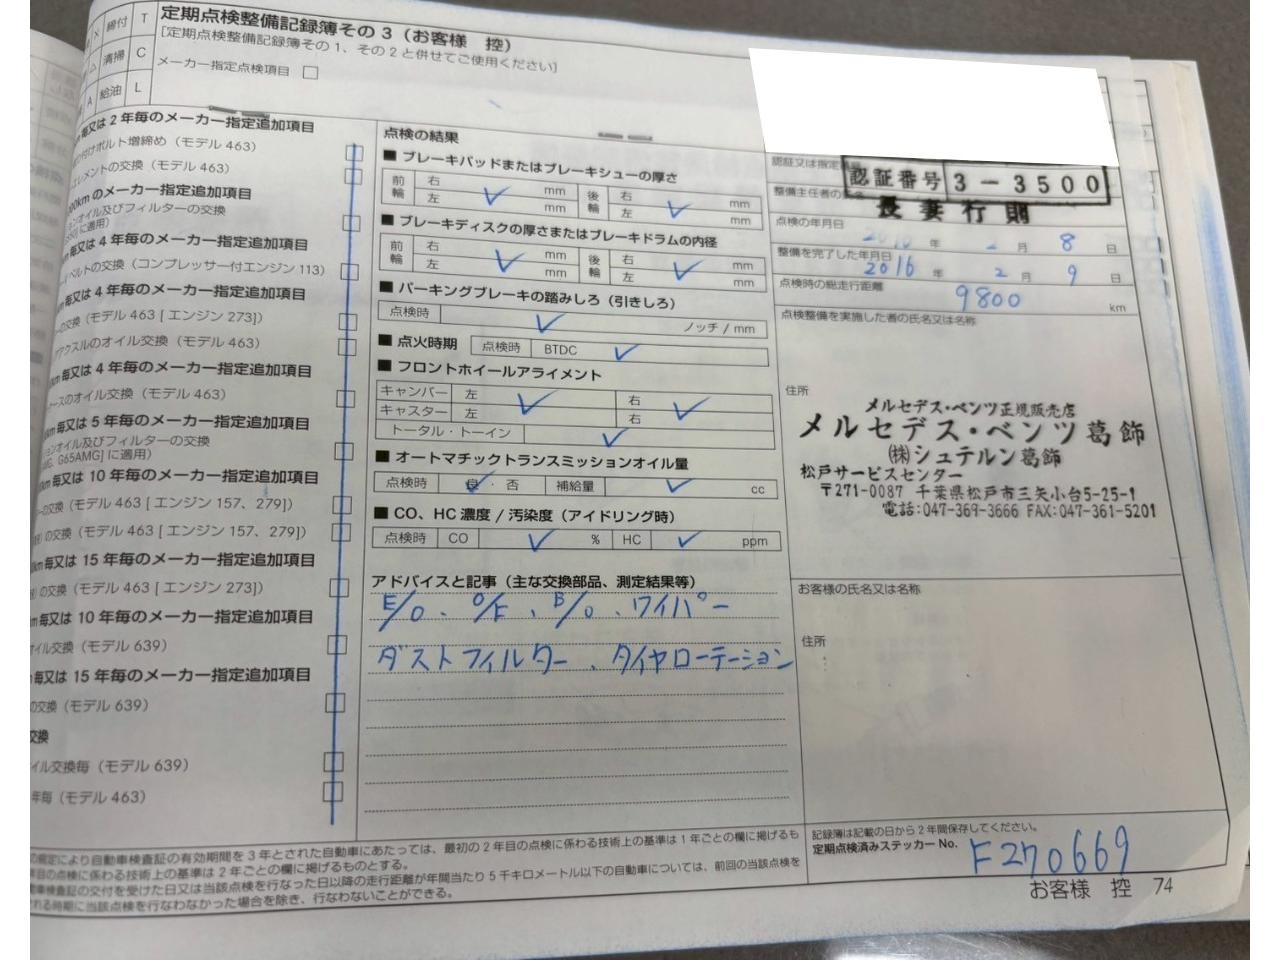 締付 T
清掃 C
A 給油 L
定期点検整備記録簿その3（お客様 控）
[定期点検整備記録簿その1、その2と併せてご使用ください]
メーカー指定点検項目
毎又は2年毎のメーカー指定追加項目
付けボルト増締め（モデル463）
エレメントの交換（モデル463）
00kmのメーカー指定追加項目
ョンオイル及びフィルターの交換
に適用）
毎又は4年毎のメーカー指定追加項目
ベルトの交換（コンプレッサー付エンジン113）
毎又は4年毎のメーカー指定追加項目
の交換（モデル463 [エンジン273]）
アクスルのオイル交換（モデル463）
km毎又は4年毎のメーカー指定追加項目
ースのオイル交換（モデル463）
km毎又は5年毎のメーカー指定追加項目
ョンオイル及びフィルターの交換
G65AMG] に適用）
km毎又は10年毎のメーカー指定追加項目
ーの交換（モデル463 [エンジン157、279]）
の交換（モデル463 [エンジン157、279]）
km毎又は15年毎のメーカー指定追加項目
の交換（モデル463 [エンジン273]）
毎又は10年毎のメーカー指定追加項目
オイル交換（モデル639）
毎又は15年毎のメーカー指定追加項目
の交換（モデル639）
交換
イル交換毎（モデル639）
年毎（モデル463）
点検の結果
■ ブレーキパッドまたはブレーキシューの厚さ
前輪 右 mm 後輪 右 mm
左 mm 左 mm
■ ブレーキディスクの厚さまたはブレーキドラムの内径
前輪 右 mm 後輪 右 mm
左 mm 左 mm
■ パーキングブレーキの踏みしろ（引きしろ）
点検時 ノッチ / mm
■ 点火時期 点検時 BTDC
■ フロントホイールアライメント
キャンバー 左 右
キャスター 左 右
トータル・トーイン
■ オートマチックトランスミッションオイル量
点検時 良・否 補給量 cc
■ CO、HC濃度 / 汚染度（アイドリング時）
点検時 CO % HC ppm
アドバイスと記事（主な交換部品、測定結果等）
E/O、O/F、B/O、ワイパー
ダストフィルター、タイヤローテーション
認証又は指定
認証番号 3-3500
整備主任者の
長妻行則
点検の年月日
年 月 8 日
整備を完了した年月日
2016 年 2 月 9 日
点検時の総走行距離
9800 km
点検整備を実施した者の氏名又は名称
住所
メルセデス・ベンツ正規販売店
メルセデス・ベンツ葛飾
(株)シュテルン葛飾
松戸サービスセンター
〒271-0087 千葉県松戸市三矢小台5-25-1
電話:047-369-3666 FAX:047-361-5201
お客様の氏名又は名称
住所
の規定により自動車検査証の有効期間を3年とされた自動車にあたっては、最初の2年目の点検に係わる技術上の基準は1年ごとの欄に掲げるも
年目の点検に係わる技術上の基準は2年ごとの欄に掲げるものとする。
車検査証の交付を受けた日又は当該点検を行なった日以降の走行距離が年間当たり5千キロメートル以下の自動車については、前回の当該点検を
れる時期に当該点検を行なわなかった場合を除き、行なわないことができる。
記録簿は記載の日から2年間保存してください。
定期点検済みステッカーNo. F270669
お客様 控 74